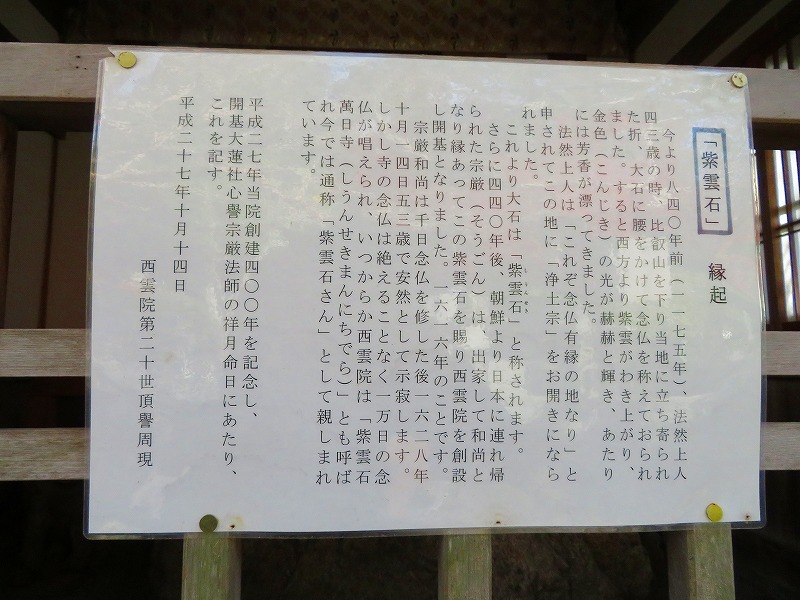 「紫雲石」 縁起
今より八四〇年前（一一七五年）、法然上人
四三歳の時、比叡山を下り当地に立ち寄られ
た折、大石に腰をかけて念仏を称えておられ
ました。すると西方より紫雲がわき上がり、
金色（こんじき）の光が赫赫と輝き、あたり
には芳香が漂ってきました。
法然上人は「これぞ念仏有縁の地なり」と
申されてこの地に「浄土宗」をお開きになら
れました。
これより大石は「紫雲石」と称されます。
しうんせき
さらに四四〇年後、朝鮮より日本に連れ帰
られた宗厳（そうごん）は、出家して和尚と
なり縁あってこの紫雲石を賜り西雲院を創設
し開基となりました。一六一六年のことです。
宗厳和尚は千日念仏を修した後一六二八年
十月一四日五三歳で安然として示寂します。
しかし寺の念仏は絶えることなく一万日の念
仏が唱えられ、いつからか西雲院は「紫雲石
萬日寺（しうんせきまんにちでら）」とも呼ば
れ今では通称「紫雲石さん」として親しまれ
ています。
平成二七年当院創建四〇〇年を記念し、
開基大蓮社心譽宗厳法師の祥月命日にあたり、
これを記す。
平成二十七年十月十四日
西雲院第二十世頂譽周現